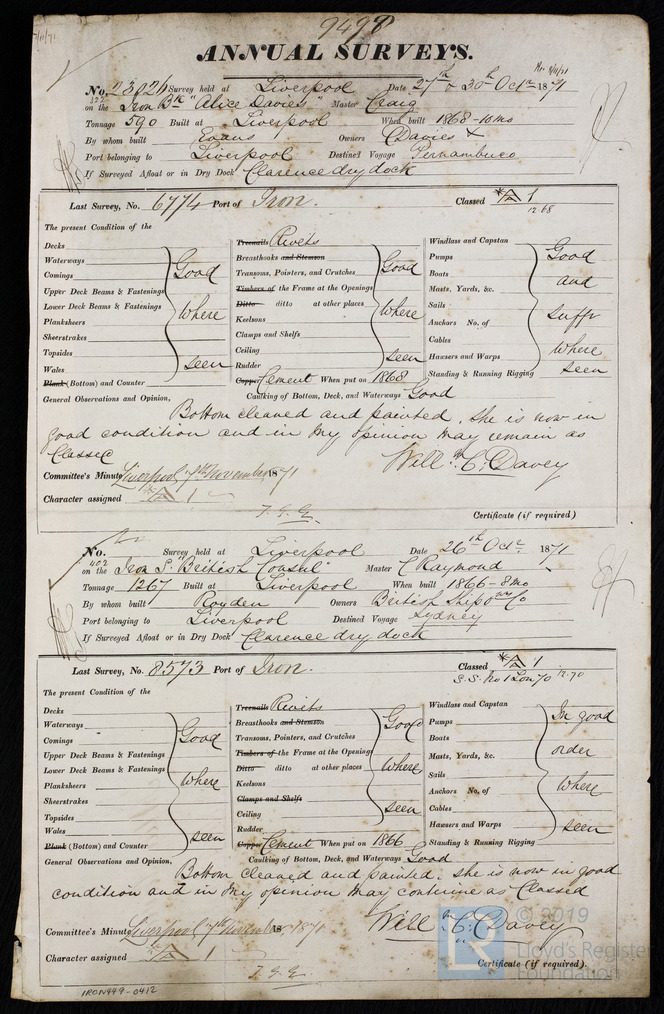 7/11/71
9498
ANNUAL SURVEYS.
No. 23026 Survey held at Liverpool Date 27th & 30th Octr 1871
on the Iron Bk "Alice Davies" Master Craig
Tonnage 590 Built at Liverpool When built 1868-10mo
By whom built Evans Owners Davies &
Port belonging to Liverpool Destined Voyage Pernambuco
If Surveyed Afloat or in Dry Dock Clarence dry dock
Last Survey, No. 6774 Port of Iron. Classed A 1
12 68
The present Condition of the
Decks
Waterways
Comings
Upper Deck Beams & Fastenings
Lower Deck Beams & Fastenings
Planksheers
Sheerstrakes
Topsides
Wales
Plank (Bottom) and Counter
Good
Where
seen
Treenails Rivets
Breasthooks and Stemson
Transoms, Pointers, and Crutches
Timbers of the Frame at the Openings
Ditto ditto at other places
Keelsons
Clamps and Shelfs
Ceiling
Rudder
Copper Cement When put on 1868
Good
Where
seen
Windlass and Capstan
Pumps
Boats
Masts, Yards, &c.
Sails
Anchors No. of
Cables
Hawsers and Warps
Standing & Running Rigging
Good
and
suffr
Where
seen
General Observations and Opinion, Caulking of Bottom, Deck, and Waterways Good
Bottom cleaned and painted. She is now in
good condition and in my opinion may remain as
Classed
Willm C. Davey
Committee's Minute Liverpool 7th November 1871
Character assigned A 1
Certificate (if required)
No. Survey held at Liverpool Date 26th Octr 1871
on the Iron S. "British Consul" Master C Raymond
Tonnage 1267 Built at Liverpool When built 1866-8mo
By whom built Royden Owners British Shipowrs Co
Port belonging to Liverpool Destined Voyage Sydney
If Surveyed Afloat or in Dry Dock Clarence dry dock
Last Survey, No. 8573 Port of Iron. Classed A 1
S.S. No 1 Lon 70 12.70
The present Condition of the
Decks
Waterways
Comings
Upper Deck Beams & Fastenings
Lower Deck Beams & Fastenings
Planksheers
Sheerstrakes
Topsides
Wales
Plank (Bottom) and Counter
Good
Where
seen
Treenails Rivets
Breasthooks and Stemson
Transoms, Pointers, and Crutches
Timbers of the Frame at the Openings
Ditto ditto at other places
Keelsons
Clamps and Shelfs
Ceiling
Rudder
Copper Cement When put on 1866
Good
Where
seen
Windlass and Capstan
Pumps
Boats
Masts, Yards, &c.
Sails
Anchors No. of
Cables
Hawsers and Warps
Standing & Running Rigging
In good
order
Where
seen
General Observations and Opinion, Caulking of Bottom, Deck, and Waterways Good
Bottom cleaned and painted. She is now in good
condition and in my opinion may continue as Classed
Willm C. Davey
Committee's Minute Liverpool 7th November 1871
Character assigned A 1
Certificate (if required).
IRON449-0412
© 2019
Lloyd's Register
Foundation